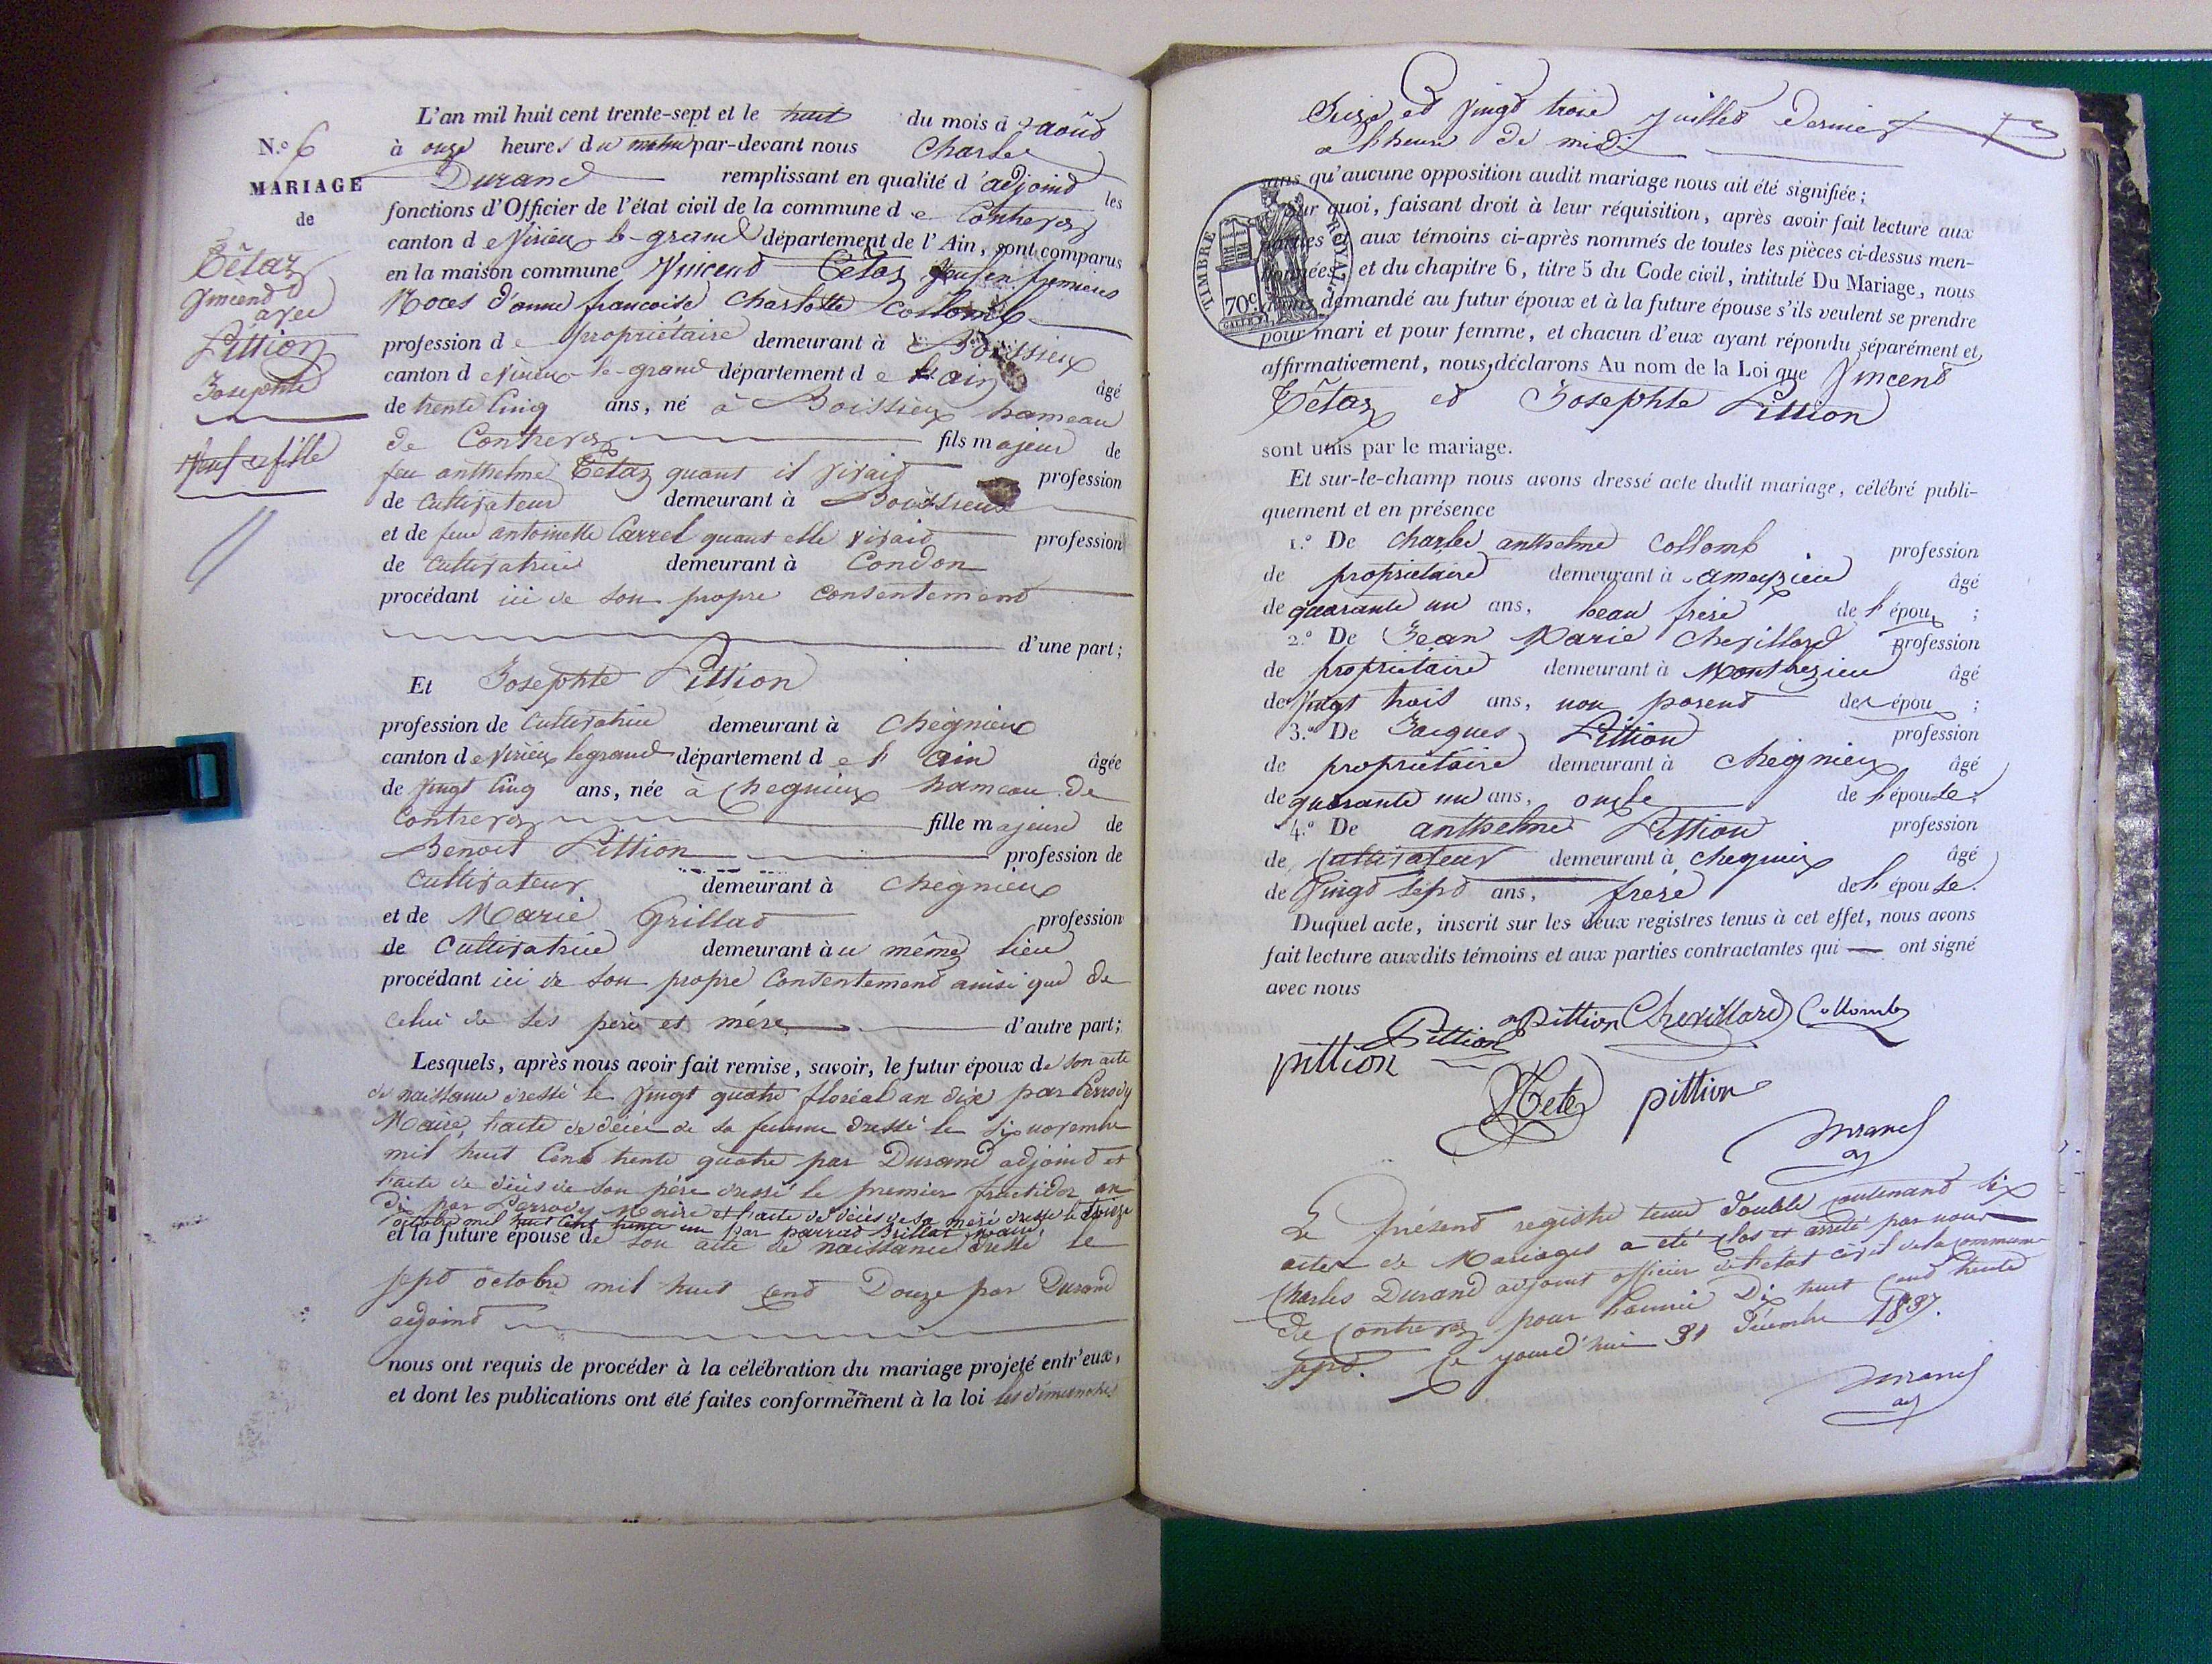 L'an mil huit cent trente-sept et le huit du mois d'août
N.º 6
à onze heures du matin par-devant nous Charles
MARIAGE
Durand remplissant en qualité d'adjoint les
de
fonctions d'Officier de l'état civil de la commune de Contrevoz
canton de Virieu le-grand département de l'Ain, sont comparus
Têtaz
Vincend
avec
Pittion
Josephte
Veuf et fille
en la maison commune Vincend Têtaz veuf en premières
Noces d'anne françoise Charlotte Collomb
profession de propriétaire demeurant à Boissieux
canton de Virieu le-grand département de l'ain âgé
de trente Cinq ans, né à Boissieux hameau
de Contrevoz fils majeur de
feu anthelme Tetaz quant il vivait profession
de Cultivateur demeurant à Boissieux
et de feue antoinette Carrel quant elle vivait profession
de Cultivatrice demeurant à Condon
procédant ici de son propre Consentement
d'une part;
Et Josephte Pittion
profession de Cultivatrice demeurant à Chegnieux
canton de Virieu legrand département de l'ain âgée
de vingt Cinq ans, née à Chegnieux hameau de
Contrevoz fille majeure de
Benoit Pittion profession de
Cultivateur demeurant à Chegnieux
et de Marie Grillat profession
de Cultivatrice demeurant au même lieu
procédant ici de son propre Consentement ainsi que de
celui de ses père et mère d'autre part;
Lesquels, après nous avoir fait remise, savoir, le futur époux de son acte
de naissance dressé le vingt quatre floréal an dix par Perrody
Maire, l'acte de décès de sa femme dressé le six novembre
mil huit Cent trente quatre par Durand adjoint et
l'acte de décès de son père dressé le premier fructidor an
Dix par Perrody Maire et l'acte de décès de sa mère dressé le treize
octobre mil huit Cent trente un par parrad Brillat maire
et la future épouse de son acte de naissance dressé le
sept octobre mil huit cent Douze par Durand
adjoint
nous ont requis de procéder à la célébration du mariage projeté entr'eux,
et dont les publications ont été faites conformément à la loi les dimanches
Seize et vingt trois juillet dernier
a l'heure de midi
sans qu'aucune opposition audit mariage nous ait été signifiée;
Sur quoi, faisant droit à leur réquisition, après avoir fait lecture aux
parties et aux témoins ci-après nommés de toutes les pièces ci-dessus men-
tionnées, et du chapitre 6, titre 5 du Code civil, intitulé Du Mariage, nous
avons demandé au futur époux et à la future épouse s'ils veulent se prendre
pour mari et pour femme, et chacun d'eux ayant répondu séparément et
affirmativement, nous déclarons Au nom de la Loi que Vincend
Têtaz et Josephte Pittion
TIMBRE ROYAL
70c
sont unis par le mariage.
Et sur-le-champ nous avons dressé acte dudit mariage, célébré publi-
quement et en présence
1.º De Charles anthelme Collomb profession
de propriétaire demeurant à ameyzieu âgé
de quarante un ans, beau frère de l'époux;
2.º De Jean Marie Chevillard profession
de propriétaire demeurant à Montbrezieu âgé
de vingt trois ans, non parend des époux;
3.º De Jacques Pittion profession
de propriétaire demeurant à Chegnieu âgé
de quarante un ans, oncle de l'épouse;
4.º De anthelme Pittion profession
de Cultivateur demeurant à Chegnieux âgé
de Vingt sept ans, frère de l'épouse.
Duquel acte, inscrit sur les deux registres tenus à cet effet, nous avons
fait lecture auxdits témoins et aux parties contractantes qui ont signé
avec nous
Pittion a pittion Chevillard Collomb
pittion
VTete pittion
Durand
adj
Le présent registre tenu double contenant six
actes de Mariages a été clos et arrêté par nous
Charles Durand adjoint officier de l'état civil de la commune
de Contrevoz pour l'année Dix huit Cent trente
sept. Ce jourd'hui 31 Décembre 1837.
Durand
adj